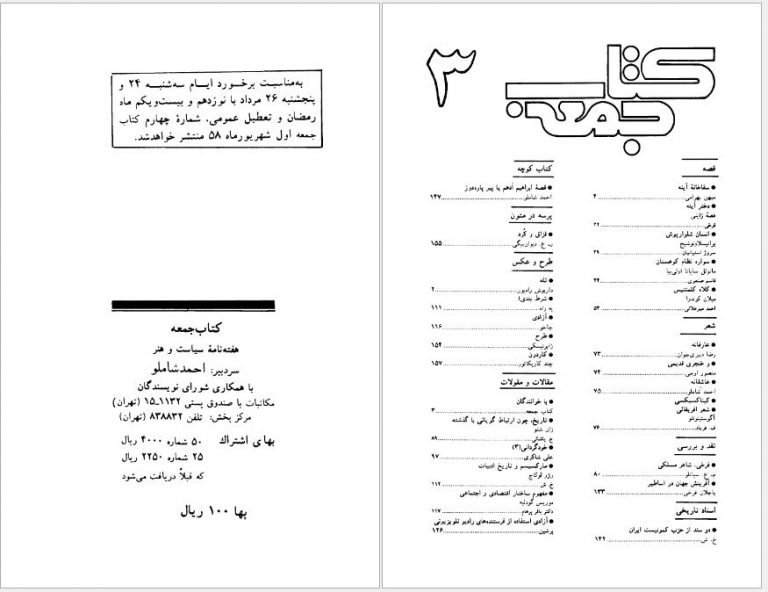 به‌مناسبت برخورد ایام سه‌شنبه ۲۴ و
پنجشنبه ۲۶ مرداد با نوزدهم و بیست‌ویکم ماه
رمضان و تعطیل عمومی، شمارهٔ چهارم کتاب
جمعه اول شهریورماه ۵۸ منتشر خواهدشد.
کتاب‌جمعه
هفته‌نامهٔ سیاست و هنر
سردبیر: احمدشاملو
با همکاری شورای نویسندگان
مکاتبات با صندوق پستی ۱۱۳۲_۱۵ (تهران)
مرکز پخش: تلفن ۸۳۸۸۳۲ (تهران)
بهای اشتراک ۵۰ شماره ۴۰۰۰ ریال
۲۵ شماره ۲۲۵۰ ریال
که قبلاً دریافت می‌شود
بها ۱۰۰ ریال
کتاب
جمعه
۳
قصه
● سقاخانهٔ آینه
میهن بهرامی ۴
● دختر آینه
قصهٔ ژاپنی
فرخی ۳۲
● انسان شلوارپوش
سروژ استپانیان ۳۹
● سواره نظام کوهستان
قاسم صنعوی ۴۴
● کلاه کلمنتیس
میلان کوندرا
احمد میرعلائی ۵۲
شعر
● عارفانه
رضا دبیری‌جوان ۷۳
● و خنجری قدیمی
منصور اوجی ۷۴
● عاشقانه
احمد شاملو ۷۵
● شعر آفریقائی
آگوستینونتو
ف. فریاد ۷۶
نقد و بررسی
● فرخی، شاعر مسلکی
م. ع. سپانلو ۸۰
● آفرینش جهان در اساطیر
باجلان فرخی ۱۳۳
اسناد تاریخی
● دو سند از حزب کمونیست ایران
خ. ش ۱۴۲
کتاب کوچه
● قصهٔ ابراهیم ادهم یا پیر پاره‌دوز
احمد شاملو ۱۴۷
پرسه در متون
● قزاق و کُرد
ب. ع. دیوان‌بیگی ۱۵۵
طرح و عکس
● تله
داریوش رادپور ۲
● شرط بندی!
به راد ۱۱۱
● آزادی
جاحو ۱۱۶
● طرح
۱۵۴
● کاردون
چند کاریکاتور ۱۵۷
مقالات و مقولات
● با خوانندگان
کتاب جمعه ۳
● تاریخ، چون ارتباط گریائی با گذشته
ژان شنو
۸۹
● خودگردانی (۳)
علی شاکری ۹۷
● مارکسیسم و تاریخ ادبیات
خ. ش ۱۱۲
● مفهوم ساختار اقتصادی و اجتماعی
موریس گودلیه
دکتر باقر پرهام ۱۱۷
● آزادی استفاده از فرستنده‌های رادیو تلویزیونی
پرشین ۱۲۶